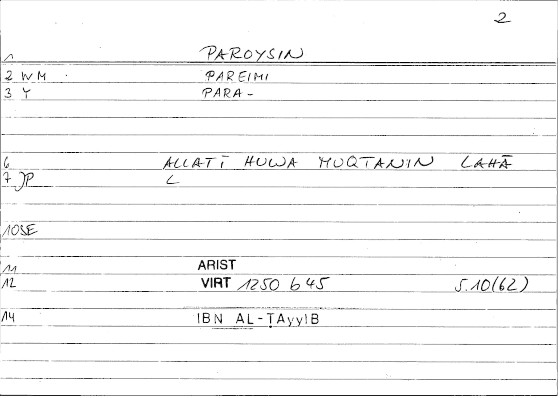 2
1 PAROYSIN
2 WM PAREIMI
3 Y PARA-
6 ALLATĪ HUWA MUQTANIN LAHĀ
7 JP L
10SE
11 ARIST
12 VIRT 1250 b 45 5.10(62)
14 IBN AL-ṬAyyIB